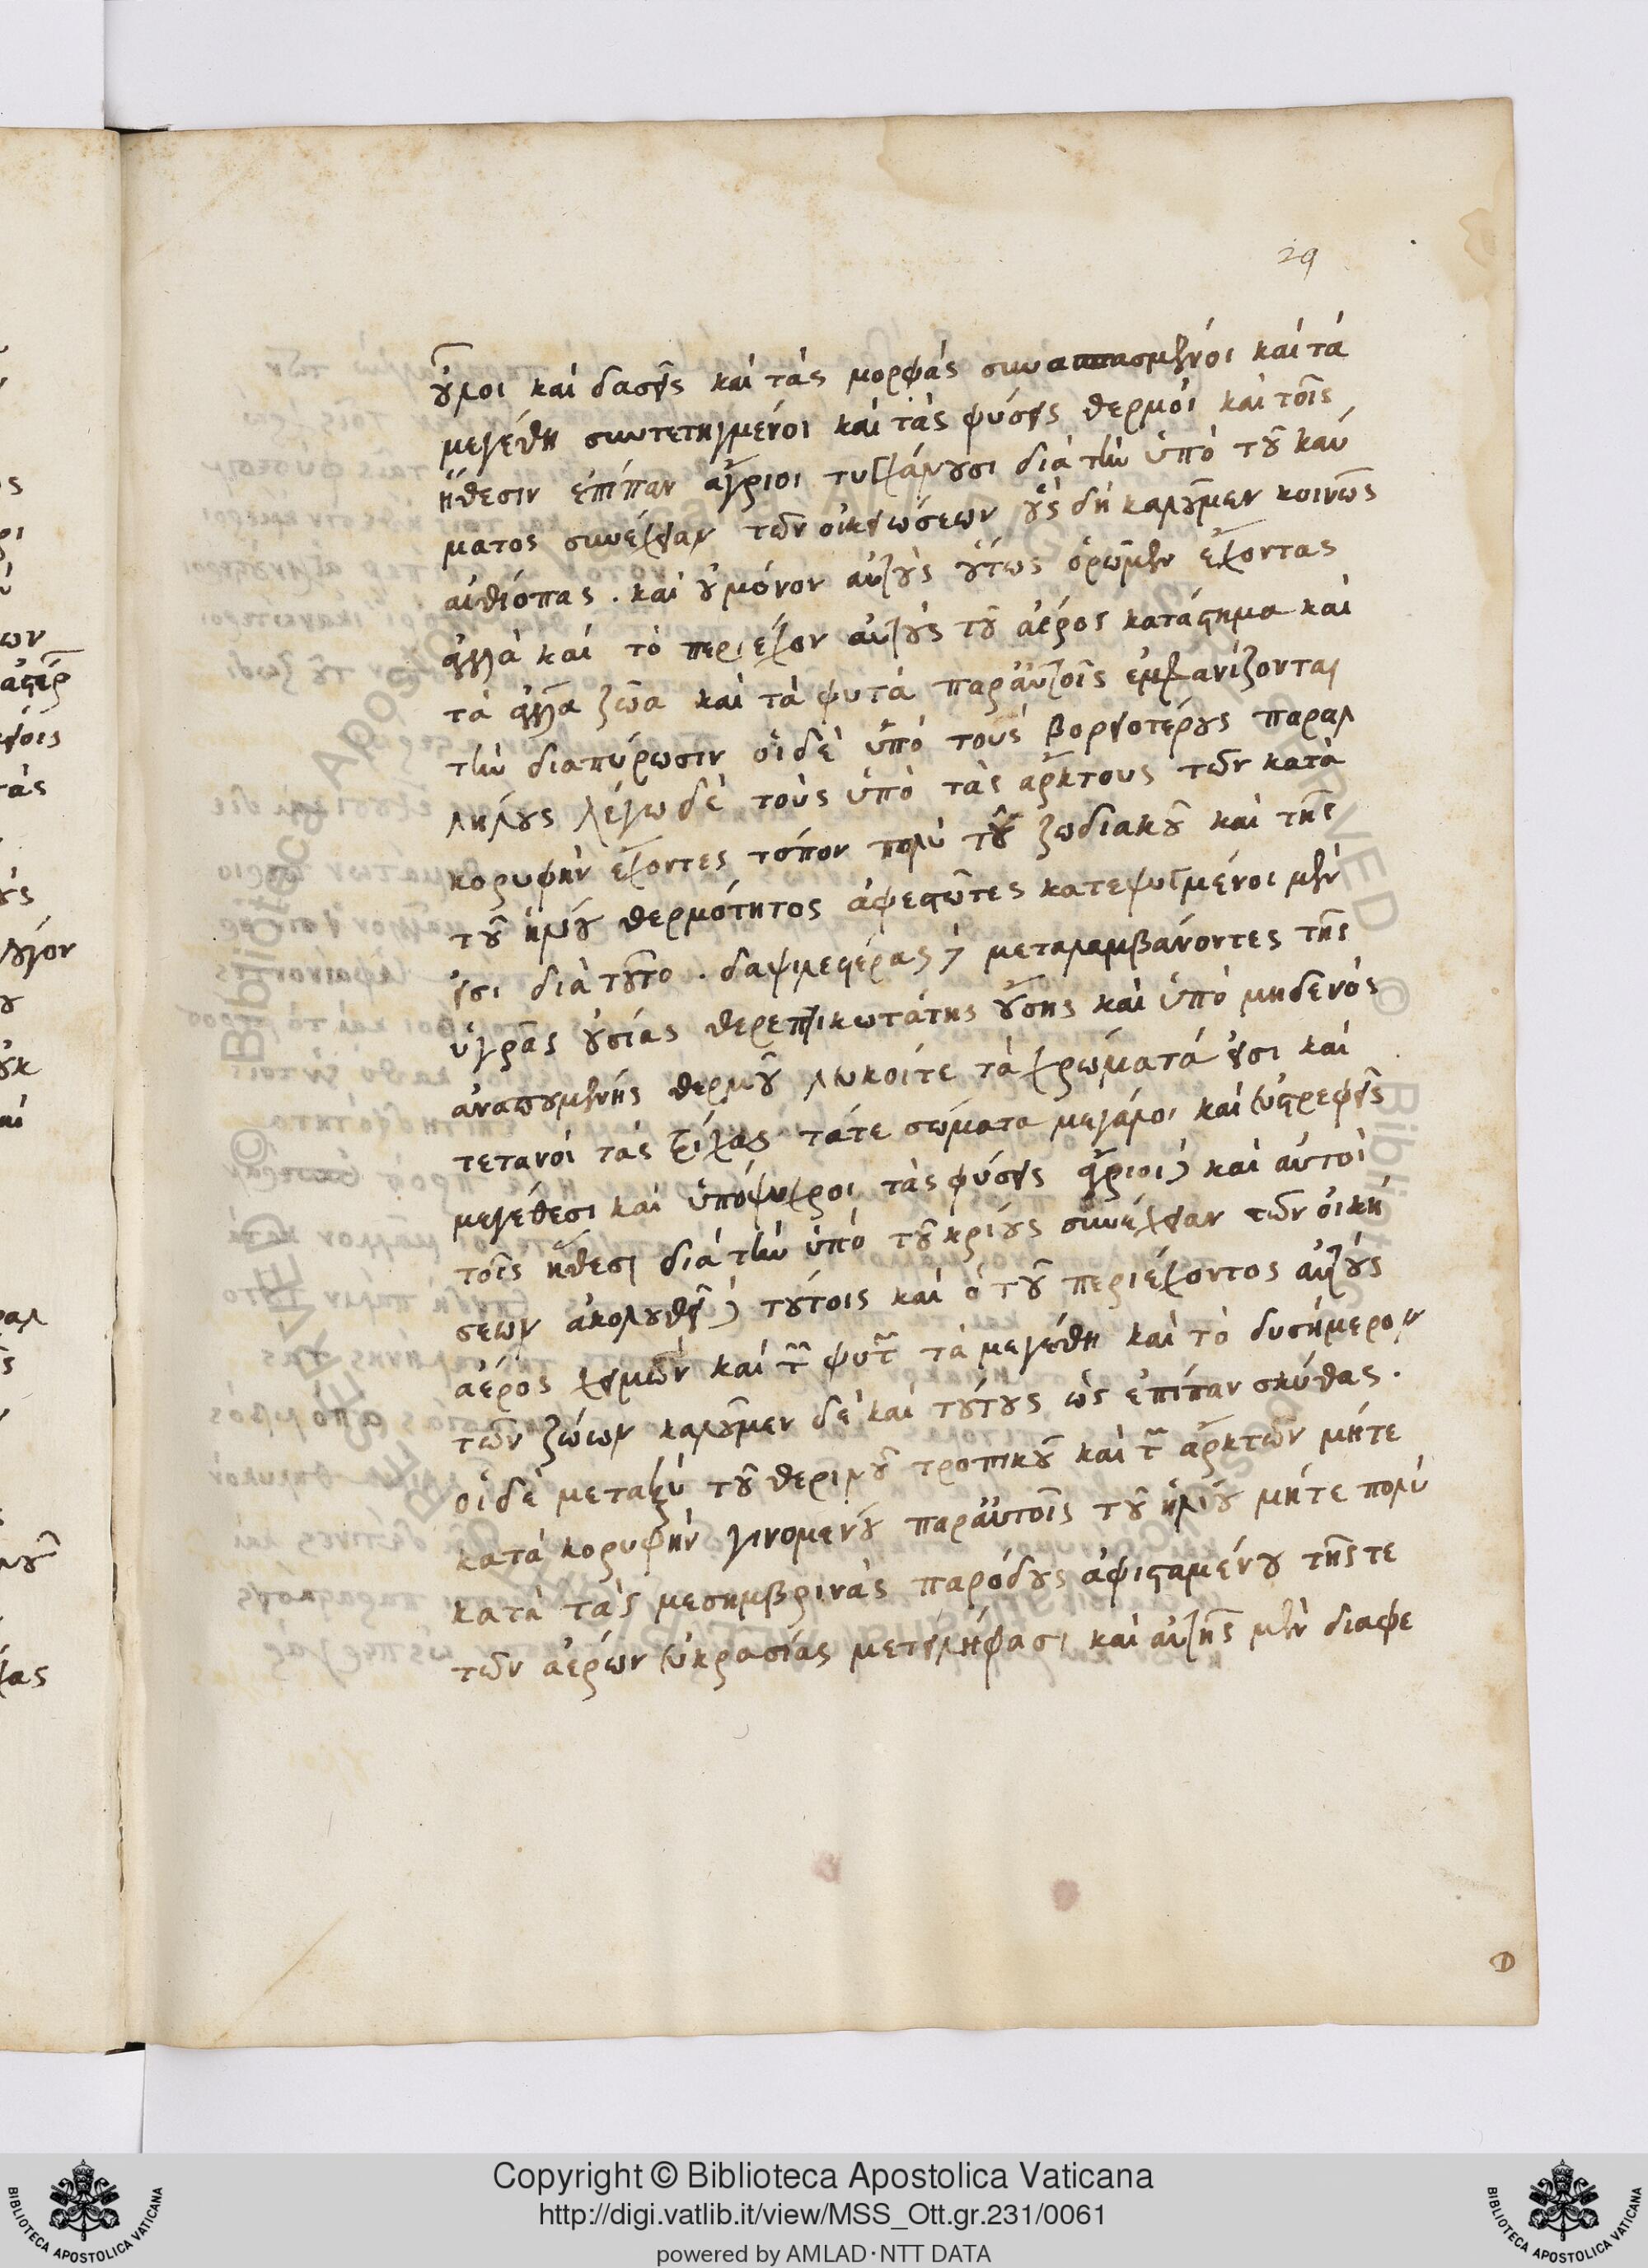 29
οὖλοι καὶ δασεῖς καὶ τὰς μορφὰς συνεσπασμένοι καὶ τὰ
μεγέθη συντετηγμένοι καὶ τὰς φύσεις θερμοὶ καὶ τοῖς
ἤθεσιν ἐπίπαν ἄγριοι τυγχάνουσι διὰ τὴν ὑπὸ τοῦ καύ
ματος συνέχειαν τῶν οἰκειώσεων οὓς δὴ καλοῦμεν κοινῶς
αἰθίοπας. καὶ οὐ μόνον αὐτοὺς οὕτως ὁρῶμεν ἔχοντας
ἀλλὰ καὶ τὸ περιέχον αὐτοὺς τοῦ ἀέρος κατάστημα καὶ
τὰ ἄλλα ζῶα καὶ τὰ φυτὰ παρ' αὐτοῖς ἐμφανίζονται
τὴν διαπύρωσιν οἱ δὲ ὑπὸ τοὺς βορειοτέρους παραλ
λήλους λέγω δὲ τοὺς ὑπὸ τὰς ἄρκτους τῶν κατὰ
κορυφὴν ἔχοντες τόπον πολὺ τοῦ ζωδιακοῦ καὶ τῆς
τοῦ ἡλίου θερμότητος ἀφεστῶτες κατεψυγμένοι μέν
εἰσι διὰ τοῦτο. δαψιλεστέρας μεταλαμβάνοντες τῆς
ὑγρᾶς οὐσίας θρεπτικωτάτης οὔσης καὶ ὑπὸ μηδενὸς
ἀναπουμένης θερμοῦ λευκοί τε τὰ χρώματά εἰσι καὶ
τετανοὶ τὰς τρίχας τά τε σώματα μεγάλοι καὶ εὐτρεφεῖς
μεγέθεσι καὶ ὑπόψυχροι τὰς φύσεις ἄγριοι καὶ αὐτοὶ
τοῖς ἤθεσι διὰ τὴν ὑπὸ τοῦ κρύους συνέχειαν τῶν οἰκή
σεων ἀκολουθεῖ τούτοις καὶ ὁ τοῦ περιέχοντος αὐτοὺς
ἀέρος χειμὼν καὶ τῶν φυτῶν τὰ μεγέθη καὶ τὸ δυσήμερον
τῶν ζώων καλοῦμεν δὲ καὶ τούτους ὡς ἐπίπαν σκύθας.
οἱ δὲ μεταξὺ τοῦ θερινοῦ τροπικοῦ καὶ τῶν ἄρκτων μήτε
κατὰ κορυφὴν γινομένου παρ' αὐτοῖς τοῦ ἡλίου μήτε πολὺ
κατὰ τὰς μεσημβρινὰς παρόδους ἀφισταμένου τῆς τε
τῶν ἀέρων εὐκρασίας μετειλήφασι καὶ αὐτῆς μὲν διαφε
D
Copyright © Biblioteca Apostolica Vaticana
http://digi.vatlib.it/view/MSS_Ott.gr.231/0061
powered by AMLAD·NTT DATA